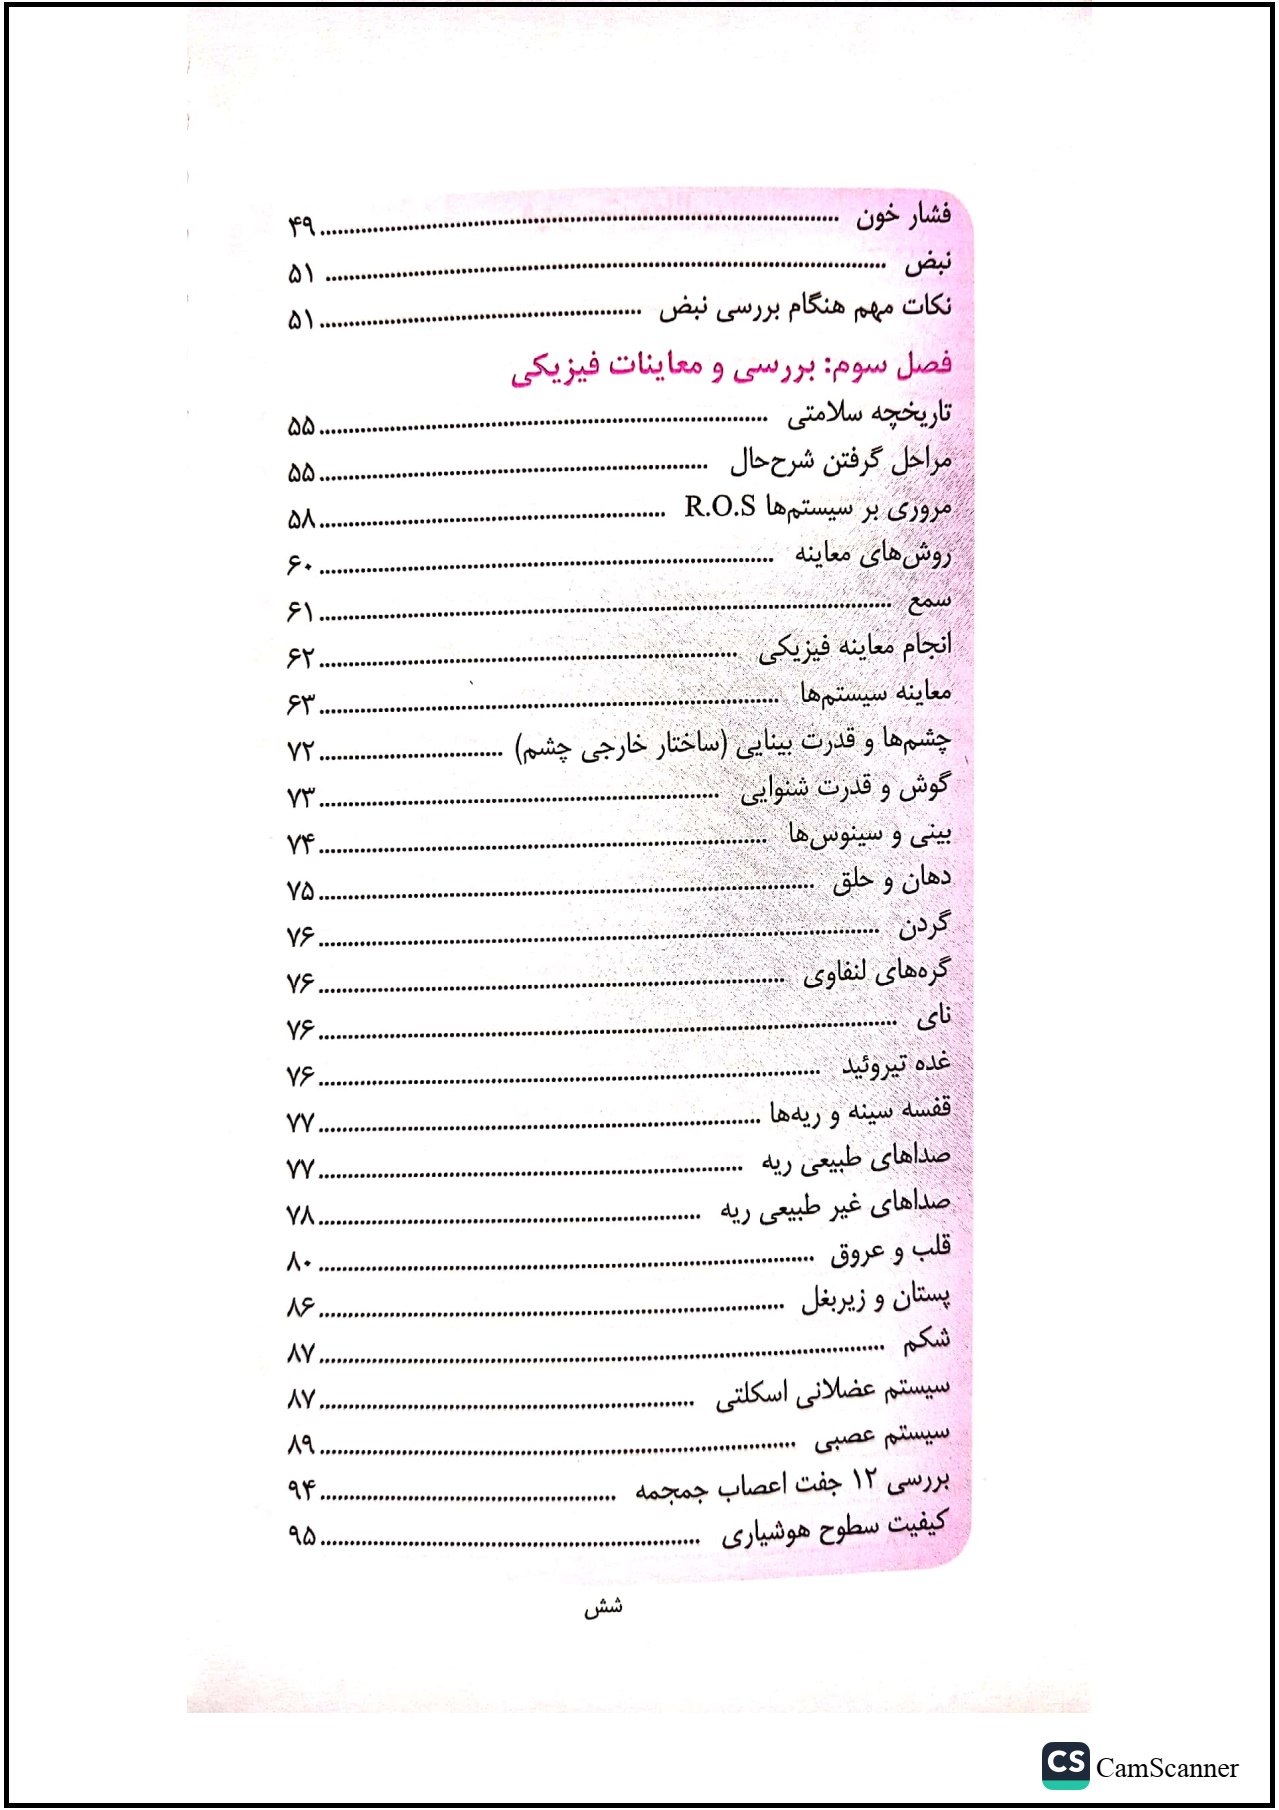 فشار خون ........ ۴۹
نبض ........ ۵۱
نکات مهم هنگام بررسی نبض ........ ۵۱
فصل سوم: بررسی و معاینات فیزیکی
تاریخچه سلامتی ........ ۵۵
مراحل گرفتن شرح‌حال ........ ۵۵
مروری بر سیستم‌ها R.O.S ........ ۵۸
روش‌های معاینه ........ ۶۰
سمع ........ ۶۱
انجام معاینه فیزیکی ........ ۶۲
معاینه سیستم‌ها ........ ۶۳
چشم‌ها و قدرت بینایی (ساختار خارجی چشم) ........ ۷۲
گوش و قدرت شنوایی ........ ۷۳
بینی و سینوس‌ها ........ ۷۴
دهان و حلق ........ ۷۵
گردن ........ ۷۶
گره‌های لنفاوی ........ ۷۶
نای ........ ۷۶
غده تیروئید ........ ۷۶
قفسه سینه و ریه‌ها ........ ۷۷
صداهای طبیعی ریه ........ ۷۷
صداهای غیر طبیعی ریه ........ ۷۸
قلب و عروق ........ ۸۰
پستان و زیربغل ........ ۸۶
شکم ........ ۸۷
سیستم عضلانی اسکلتی ........ ۸۷
سیستم عصبی ........ ۸۹
بررسی ۱۲ جفت اعصاب جمجمه ........ ۹۴
کیفیت سطوح هوشیاری ........ ۹۵
شش
CS CamScanner